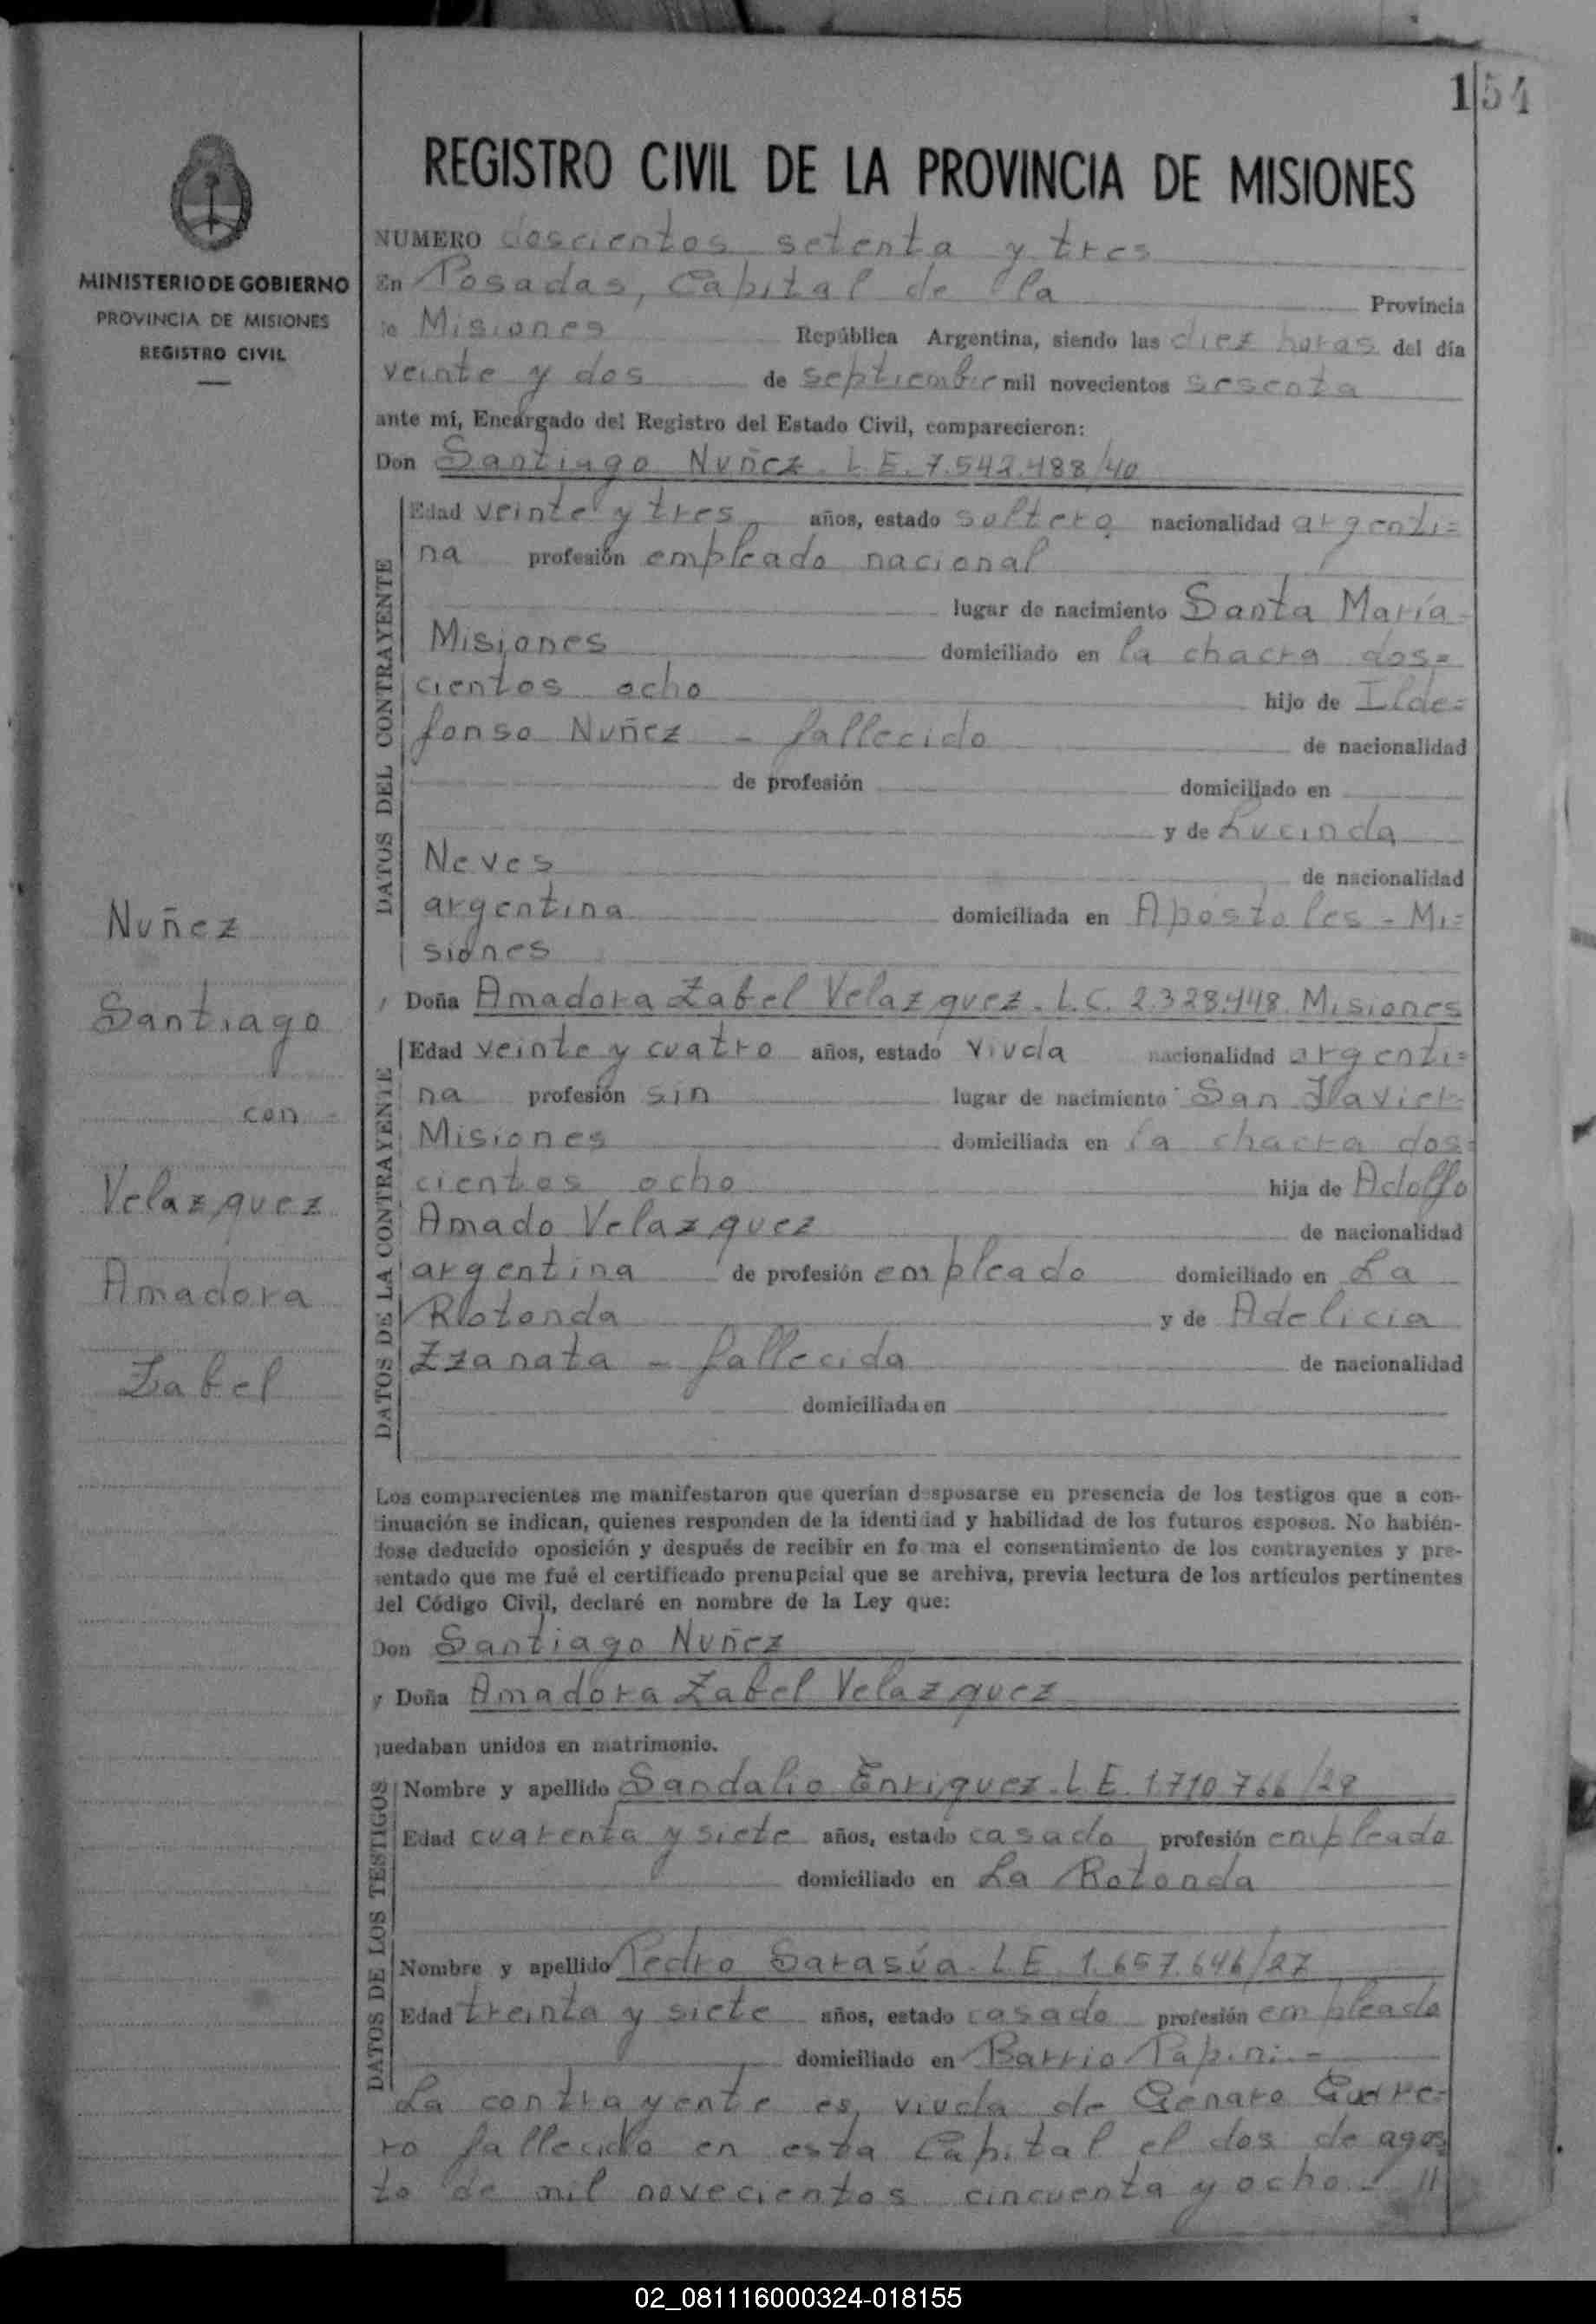 154
REGISTRO CIVIL DE LA PROVINCIA DE MISIONES
MINISTERIO DE GOBIERNO
PROVINCIA DE MISIONES
REGISTRO CIVIL
NUMERO doscientos setenta y tres
En Posadas, Capital de la Provincia
de Misiones República Argentina, siendo las diez horas del día
veinte y dos de septiembre mil novecientos sesenta
ante mí, Encargado del Registro del Estado Civil, comparecieron:
Don Santiago Nuñez. L.E. 7.542.488/40
DATOS DEL CONTRAYENTE
Edad veinte y tres años, estado soltero nacionalidad argenti=
na profesión empleado nacional
lugar de nacimiento Santa María
Misiones domiciliado en la chacra dos=
cientos ocho hijo de Ilde=
fonso Nuñez - fallecido de nacionalidad
de profesión domiciliado en
y de Lucinda
Neves de nacionalidad
argentina domiciliada en Apostoles - Mi=
siones
Nuñez
Santiago
con
Velazquez
Amadora
Zabel
y Doña Amadora Zabel Velazquez. L.C. 2.328.448 Misiones
DATOS DE LA CONTRAYENTE
Edad veinte y cuatro años, estado viuda nacionalidad argenti=
na profesión sin lugar de nacimiento San Javier
Misiones domiciliada en la chacra dos=
cientos ocho hija de Adolfo
Amado Velazquez de nacionalidad
argentina de profesión empleado domiciliado en La
Rotonda y de Adelicia
Zzanata - fallecida de nacionalidad
domiciliada en
Los comparecientes me manifestaron que querían desposarse en presencia de los testigos que a con-
tinuación se indican, quienes responden de la identidad y habilidad de los futuros esposos. No habién-
dose deducido oposición y después de recibir en forma el consentimiento de los contrayentes y pre-
sentado que me fué el certificado prenupcial que se archiva, previa lectura de los artículos pertinentes
del Código Civil, declaré en nombre de la Ley que:
Don Santiago Nuñez
y Doña Amadora Zabel Velazquez
quedaban unidos en matrimonio.
DATOS DE LOS TESTIGOS
Nombre y apellido Sandalio Enriquez. L.E. 1.710.766/29
Edad cuarenta y siete años, estado casado profesión empleado
domiciliado en La Rotonda
Nombre y apellido Pedro Sarasúa. L.E. 1.657.646/27
Edad treinta y siete años, estado casado profesión empleado
domiciliado en Barrio Papini =
La contrayente es viuda de Genaro
fallecido en esta Capital el dos de agos
to de mil novecientos cincuenta y ocho. //
02_081116000324-018155